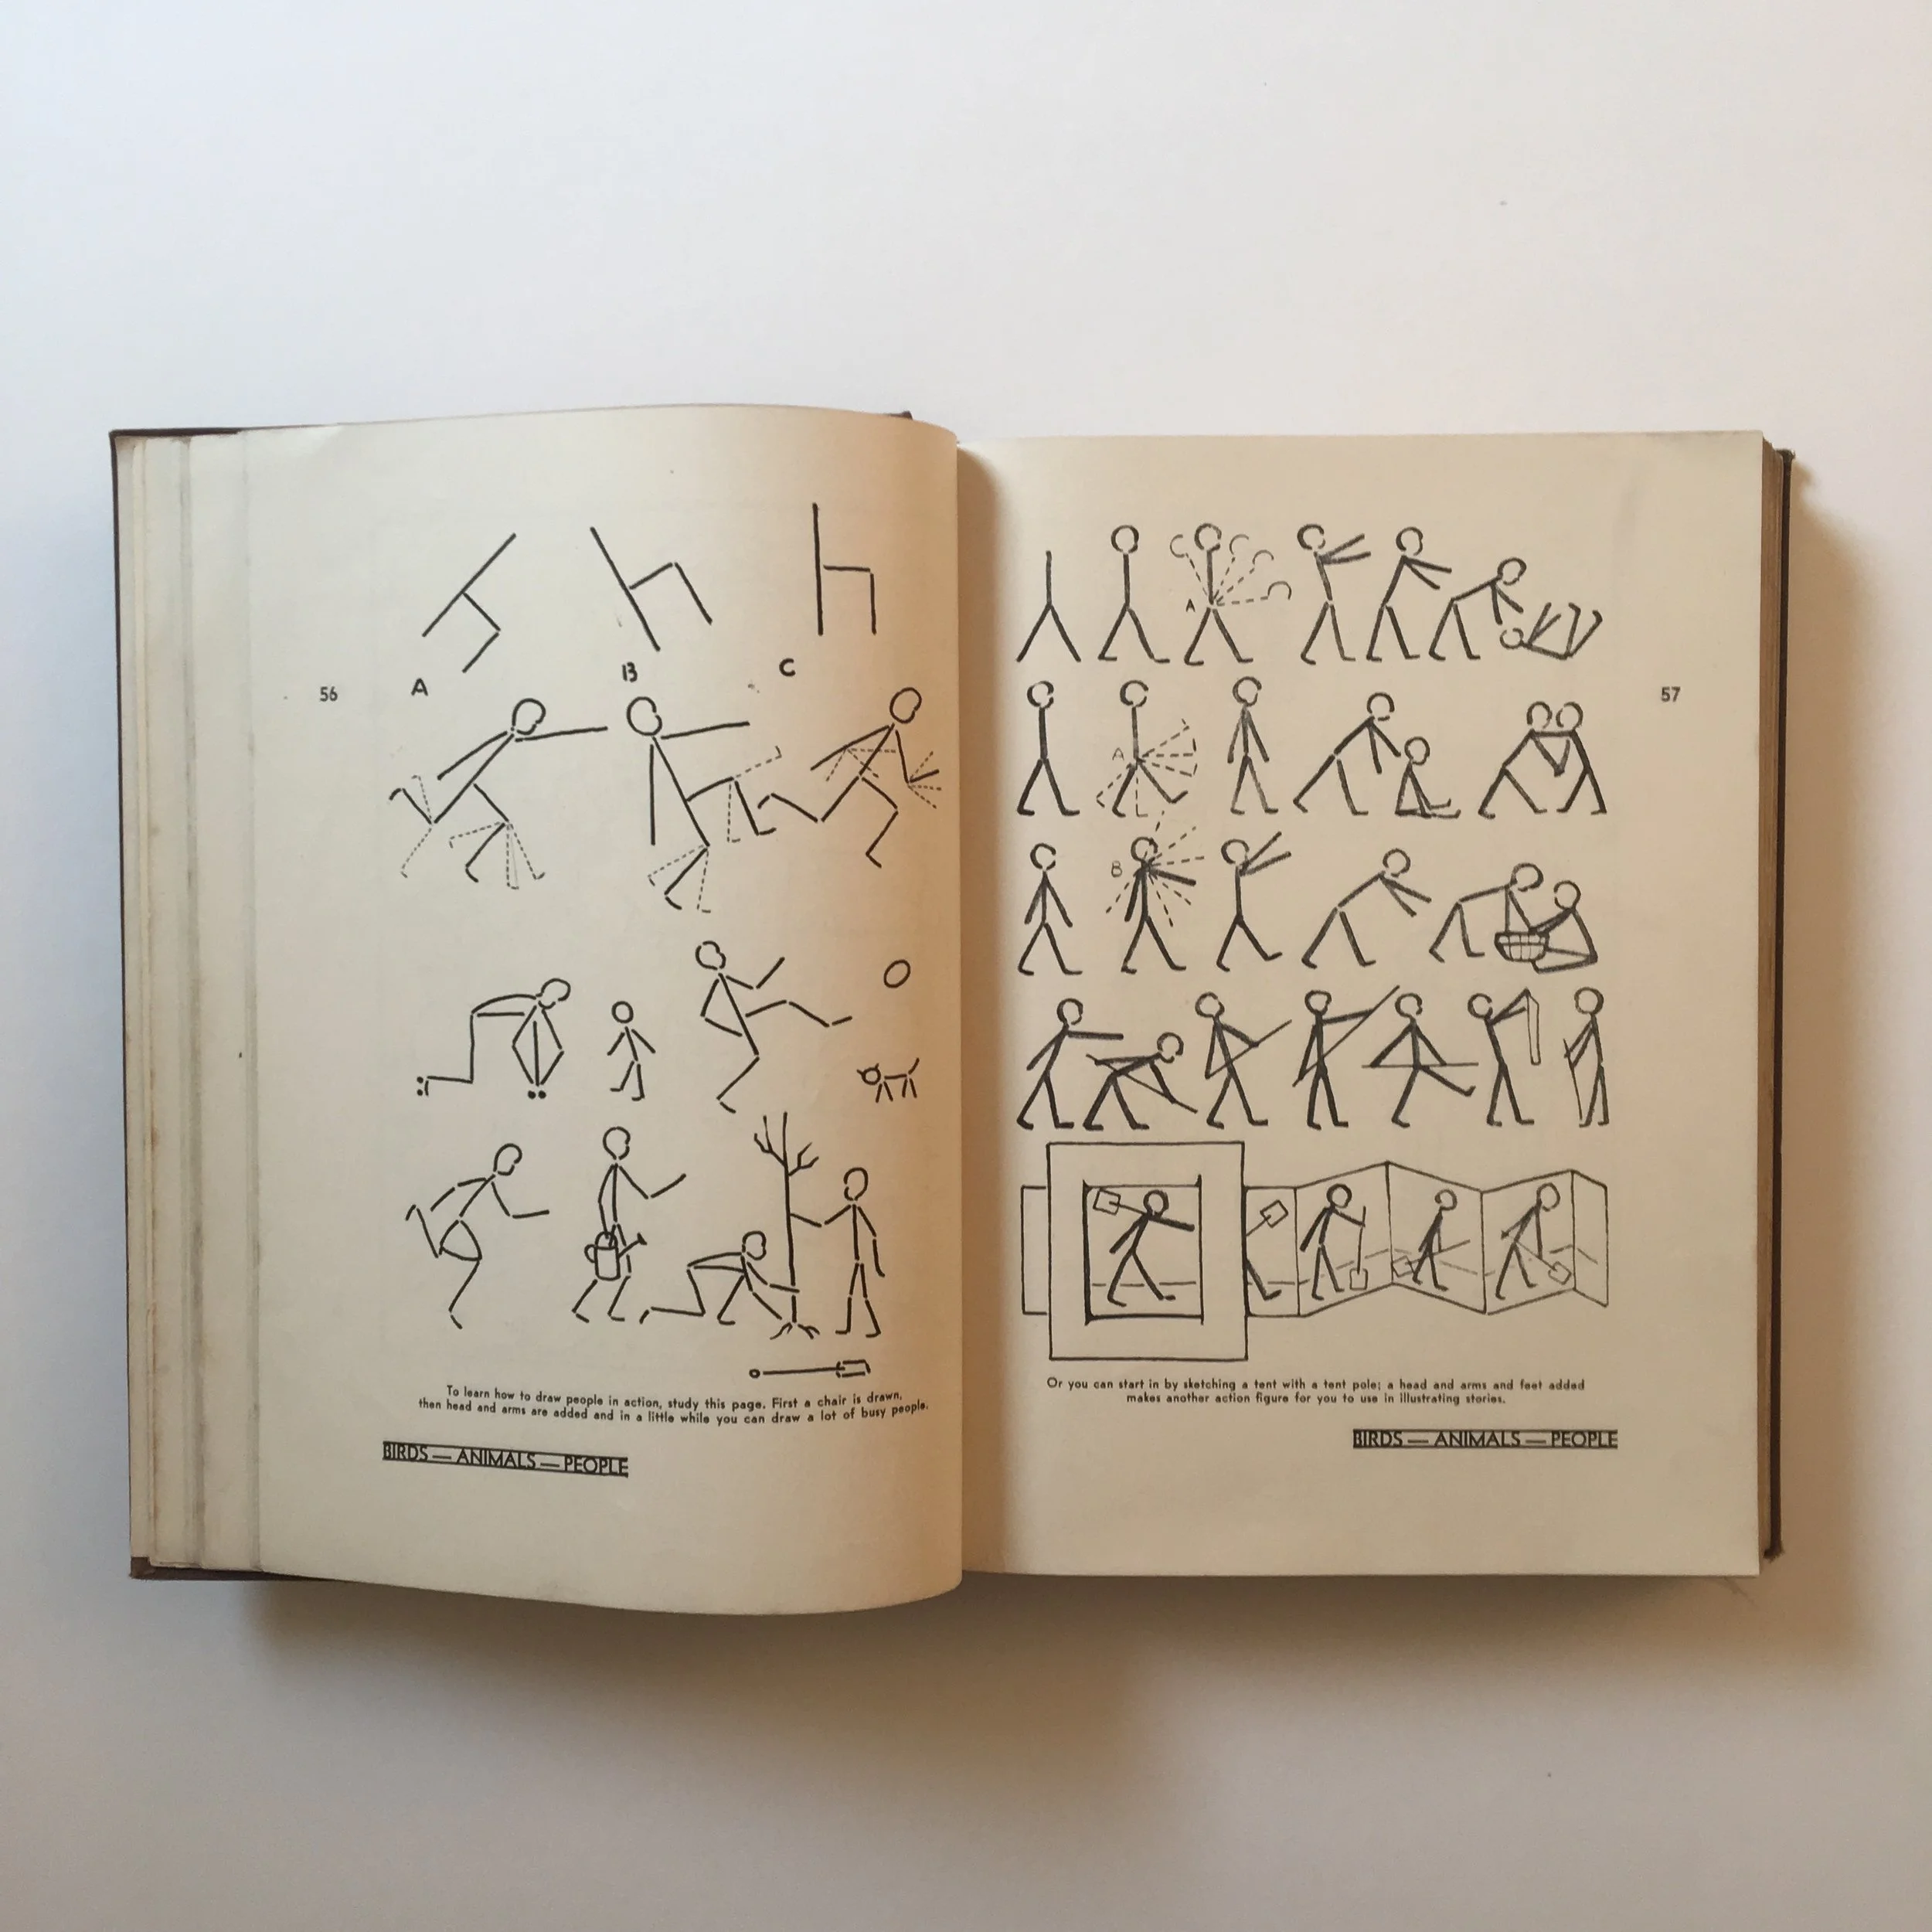 56
A
B
C
To learn how to draw people in action, study this page. First a chair is drawn,
then head and arms are added and in a little while you can draw a lot of busy people.
BIRDS — ANIMALS — PEOPLE
57
A
A
B
Or you can start in by sketching a tent with a tent pole; a head and arms and feet added
makes another action figure for you to use in illustrating stories.
BIRDS — ANIMALS — PEOPLE